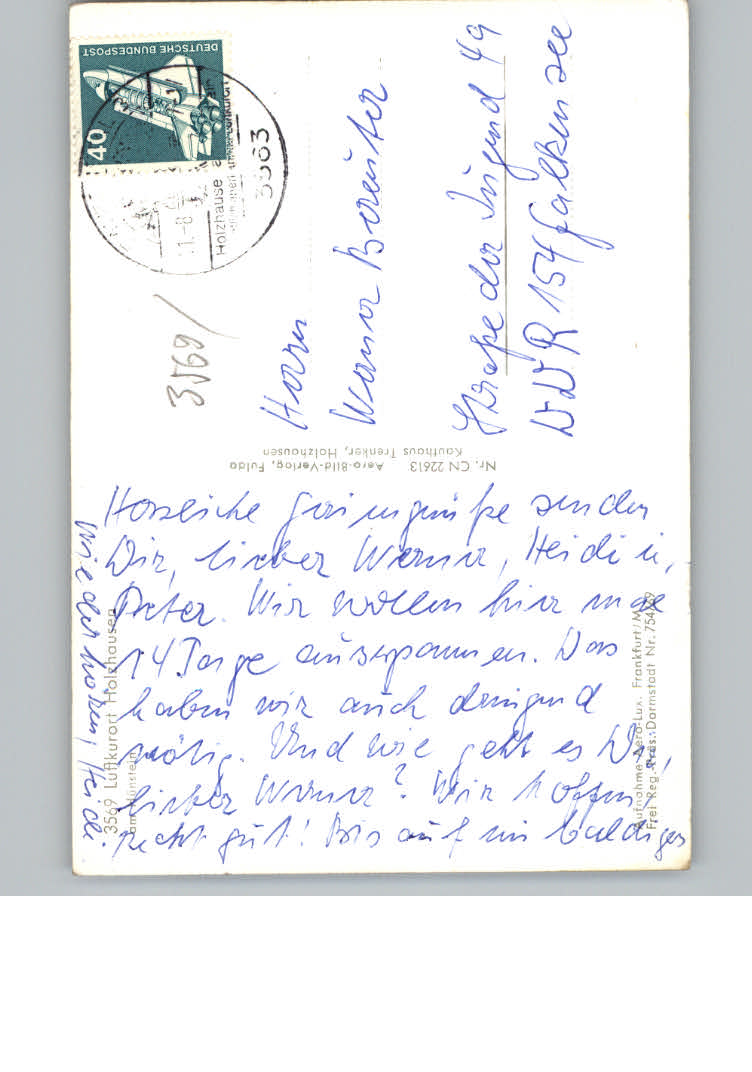 Herzliche Feriengrüße senden
Dir, lieber Werner, Heidi u.
Peter. Wir wollen hier mal
14 Tage ausspannen. Das
haben wir auch dringend
nötig. Und wie geht es Dir,
lieber Werner? Wir hoffen,
recht gut! Bis auf ein baldiges
Wiederhören, Heidi.
3569 Luftkurort Holzhausen
am Hünstein
Aufnahme Aero-Lux, Frankfurt/M.
Frei Reg.-Präs. Darmstadt Nr. 754/69
Nr. CN 22613 Aero-Bild-Verlag, Fulda
Kaufhaus Trenker, Holzhausen
DEUTSCHE BUNDESPOST
40
3563
Holzhause
Luftkurort
-8
3569/
Herrn
Werner
Straße der Jugend 49
DDR 154 Falkensee